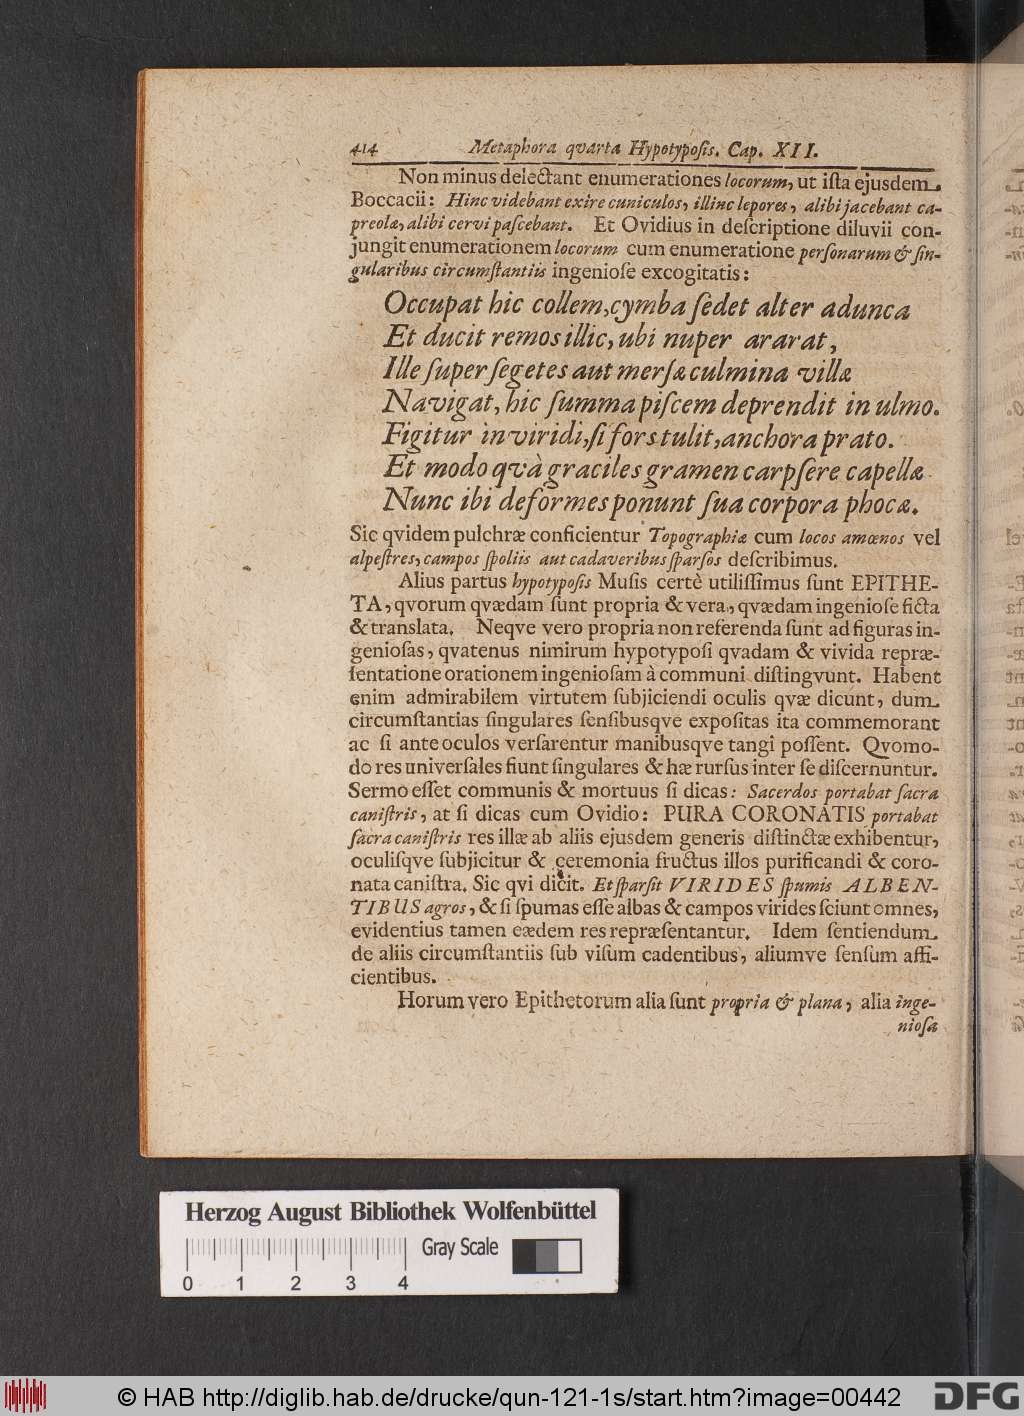 414 Metaphora qvarta Hypotypoſis. Cap. XII.
Non minus delectant enumerationes locorum, ut iſta ejusdem
Boccacii: Hinc videbant exire cuniculos, illinc lepores, alibi jacebant ca-
preolæ, alibi cervi paſcebant. Et Ovidius in deſcriptione diluvii con-
jungit enumerationem locorum cum enumeratione perſonarum & ſin-
gularibus circumſtantiis ingenioſe excogitatis:
Occupat hic collem, cymba ſedet alter adunca
Et ducit remos illic, ubi nuper ararat,
Ille ſuper ſegetes aut merſæ culmina villæ
Navigat, hic ſumma piſcem deprendit in ulmo.
Figitur in viridi, ſi fors tulit, anchora prato.
Et modo qvà graciles gramen carpſere capellæ
Nunc ibi deformes ponunt ſua corpora phocæ.
Sic qvidem pulchræ conficientur Topographiæ cum locos amœnos vel
alpeſtres, campos ſpoliis aut cadaveribus ſparſos deſcribimus.
Alius partus hypotypoſis Muſis certè utiliſſimus ſunt EPITHE-
TA, qvorum qvædam ſunt propria & vera, qvædam ingenioſe ficta
& translata. Neqve vero propria non referenda ſunt ad figuras in-
genioſas, qvatenus nimirum hypotypoſi qvadam & vivida repræ-
ſentatione orationem ingenioſam à communi diſtingvunt. Habent
enim admirabilem virtutem ſubjiciendi oculis qvæ dicunt, dum
circumſtantias ſingulares ſenſibusqve expoſitas ita commemorant
ac ſi ante oculos verſarentur manibusqve tangi poſſent. Qvomo-
do res univerſales fiunt ſingulares & hæ rurſus inter ſe diſcernuntur.
Sermo eſſet communis & mortuus ſi dicas: Sacerdos portabat ſacra
caniſtris, at ſi dicas cum Ovidio: PURA CORONATIS portabat
ſacra caniſtris res illæ ab aliis ejusdem generis diſtinctæ exhibentur,
oculiſqve ſubjicitur & ceremonia fructus illos purificandi & coro-
nata caniſtra. Sic qvi dicit. Et ſparſit VIRIDES ſpumis ALBEN-
TIBUS agros, & ſi ſpumas eſſe albas & campos virides ſciunt omnes,
evidentius tamen eædem res repræſentantur. Idem ſentiendum
de aliis circumſtantiis ſub viſum cadentibus, aliumve ſenſum affi-
cientibus.
Horum vero Epithetorum alia ſunt propria & plana, alia inge-
nioſa
Herzog August Bibliothek Wolfenbüttel
Gray Scale
0 1 2 3 4
© HAB http://diglib.hab.de/drucke/qun-121-1s/start.htm?image=00442
DFG